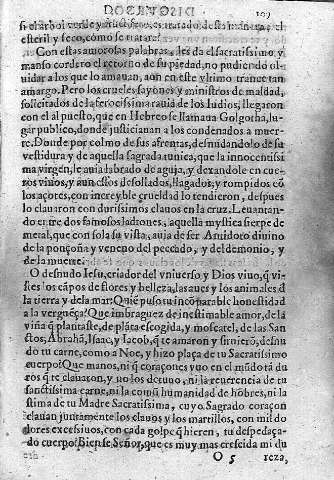 DISCVRSO
109
si el arbol verde y fructifero, es tratado desta manera, el
esteril y seco, como se tratara?
Con estas amorosas palabras, les da el sacratissimo, y
manso cordero el retorno de su piedad, no pudiendo ol-
uidar a los que lo amauan, aun en este vltimo trance tan
amargo. Pero los crueles sayones y ministros de maldad,
solicitados de la ferocissima rauia de los Iudios, llegaron
con el al puesto, que en Hebreo se llamaua Golgotha, lu-
gar publico, donde justiciauan a los condenados a muer-
te. Donde por colmo de sus afrentas, desnudandolo de su
vestidura y de aquella sagrada tunica, que la innocentissi
ma virgen, le auia labrado de aguja, y dexandole en cue-
ros viuos, y aun essos desollados, llagados, y rompidos cõ
los açotes, con increyble crueldad lo tendieron, despues
lo clauaron con durissimos clauos en la cruz. Leuantan-
do entre dos famosos ladrones, aquella mystica sierpe de
metal, que con sola su vista, auia de ser Antidoto diuino
de la ponçoña y veneno del peccado, y del demonio, y
de la muerte.
O desnudo Iesu, criador del vniuerso y Dios viuo, q̃ vi-
stes los cãpos de flores y belleza, las aues y los animales d̃
la tierra y de la mar: Quiẽ puso tu incõparable honestidad
a la verguẽça? Que imbraguez de inestimable amor, de la
viña q̃ plantaste, de plãta escogida, y moscatel, de las San-
ctos, Abrahã, Isaac, y Iacob, q̃ te amaron y siruierõ, desnu
do tu carne, como a Noe, y hizo plaça de tu Sacratissimo
cuerpo? Que manos, ni q̃ coraçones vuo en el mũdo tã du
ros q̃ te clauaron, y no los detuuo, ni la reuerencia de tu
sanctissima carne, ni la comũ humanidad de hõbres, ni la
stima de tu Madre Sacratissima, cuyo Sagrado coraçon
clauan juntamente los clauos y los martillos, con mil do
lores excessiuos, con cada golpe q̃ hieren, tu despedaça-
do cuerpo? Bien se Señor, que es muy mas crescida mi du
O 5
reza,